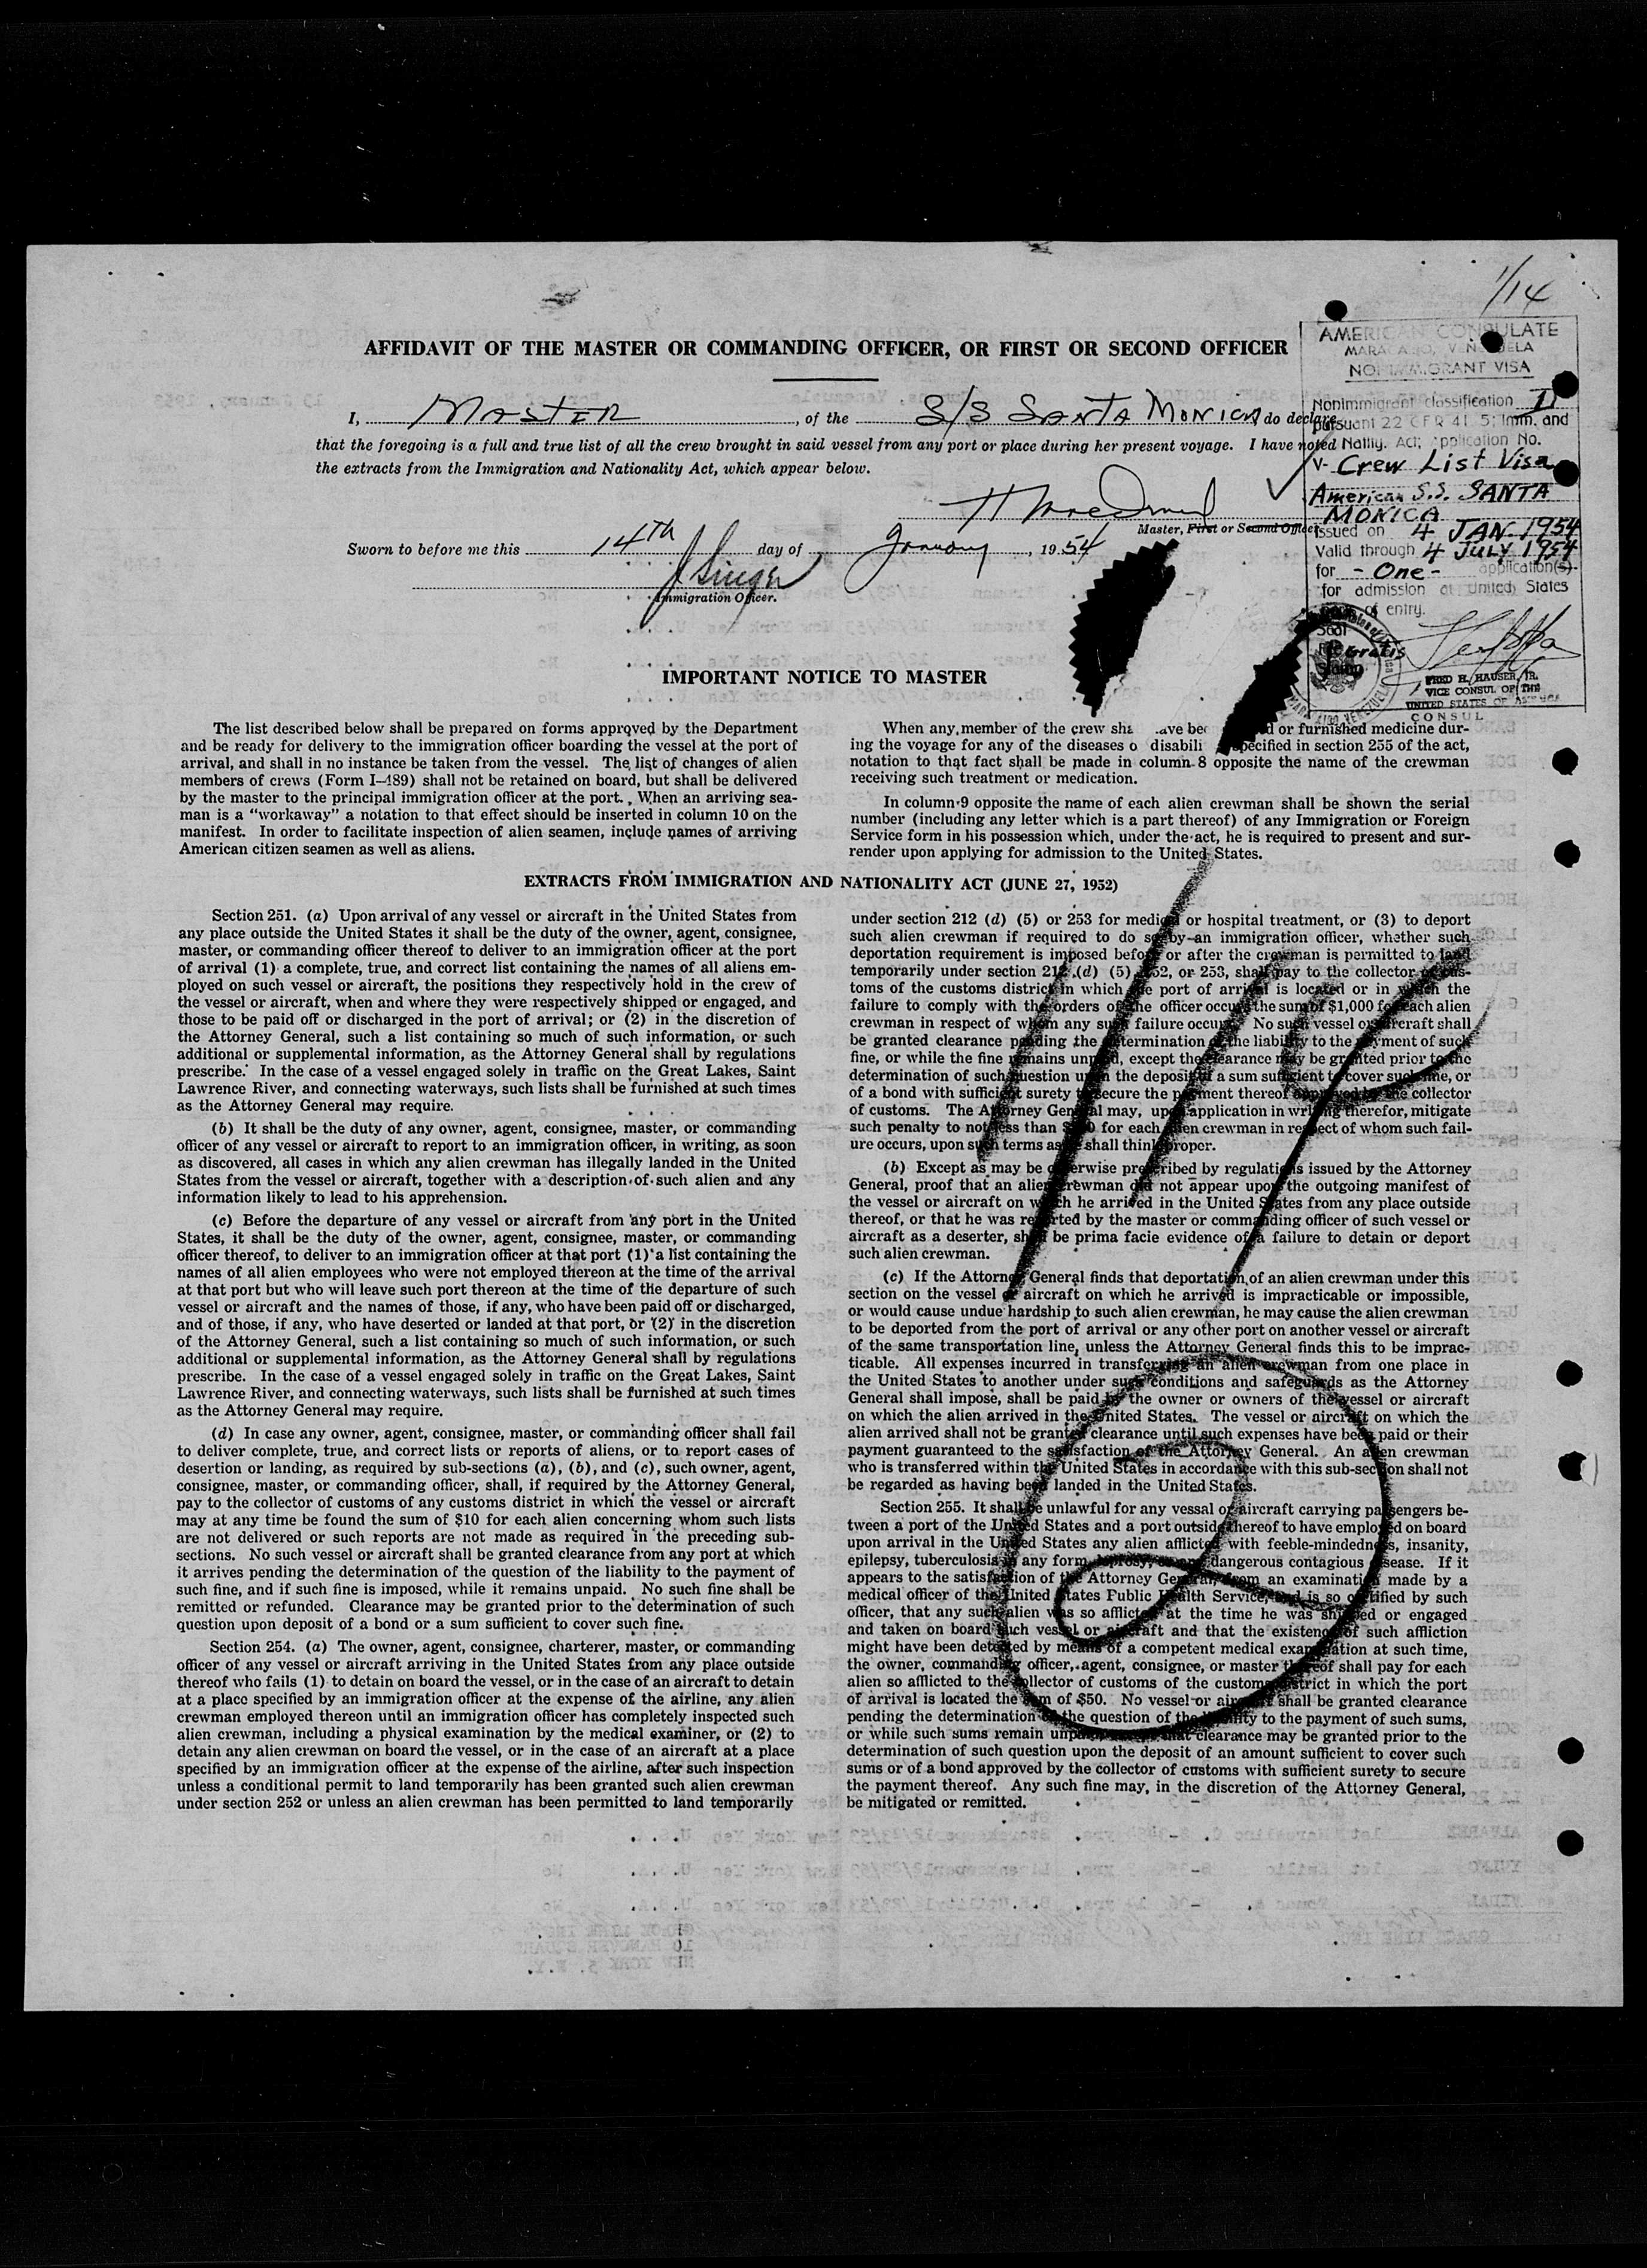 1/14
AFFIDAVIT OF THE MASTER OR COMMANDING OFFICER, OR FIRST OR SECOND OFFICER
I, MASTER, of the S/S SANTA MONICA, do declare
that the foregoing is a full and true list of all the crew brought in said vessel from any port or place during her present voyage. I have noted
the extracts from the Immigration and Nationality Act, which appear below.
Master, First or Second Officer.
Sworn to before me this 14TH day of January, 1954
J Singer
Immigration Officer.
AMERICAN CONSULATE
MARACAIBO, VENEZUELA
NONIMMIGRANT VISA
Nonimmigrant classification D
pursuant 22 CFR 41.5; Imm. and
Natlly. Act; Application No.
V- Crew List Visa
American S.S. SANTA
MONICA
Issued on 4 JAN. 1954
Valid through 4 JULY 1954
for - One - application(s)
for admission at United States
of entry.
Seal
Gratis
FRED H. HAUSER, JR.
VICE CONSUL OF THE
UNITED STATES OF AMERICA
CONSUL
IMPORTANT NOTICE TO MASTER
The list described below shall be prepared on forms approved by the Department
and be ready for delivery to the immigration officer boarding the vessel at the port of
arrival, and shall in no instance be taken from the vessel. The list of changes of alien
members of crews (Form I-489) shall not be retained on board, but shall be delivered
by the master to the principal immigration officer at the port. When an arriving sea-
man is a "workaway" a notation to that effect should be inserted in column 10 on the
manifest. In order to facilitate inspection of alien seamen, include names of arriving
American citizen seamen as well as aliens.
When any member of the crew sha ave be d or furnished medicine dur-
ing the voyage for any of the diseases o disabili specified in section 255 of the act,
notation to that fact shall be made in column 8 opposite the name of the crewman
receiving such treatment or medication.
In column 9 opposite the name of each alien crewman shall be shown the serial
number (including any letter which is a part thereof) of any Immigration or Foreign
Service form in his possession which, under the act, he is required to present and sur-
render upon applying for admission to the United States.
EXTRACTS FROM IMMIGRATION AND NATIONALITY ACT (JUNE 27, 1952)
Section 251. (a) Upon arrival of any vessel or aircraft in the United States from
any place outside the United States it shall be the duty of the owner, agent, consignee,
master, or commanding officer thereof to deliver to an immigration officer at the port
of arrival (1) a complete, true, and correct list containing the names of all aliens em-
ployed on such vessel or aircraft, the positions they respectively hold in the crew of
the vessel or aircraft, when and where they were respectively shipped or engaged, and
those to be paid off or discharged in the port of arrival; or (2) in the discretion of
the Attorney General, such a list containing so much of such information, or such
additional or supplemental information, as the Attorney General shall by regulations
prescribe. In the case of a vessel engaged solely in traffic on the Great Lakes, Saint
Lawrence River, and connecting waterways, such lists shall be furnished at such times
as the Attorney General may require.
(b) It shall be the duty of any owner, agent, consignee, master, or commanding
officer of any vessel or aircraft to report to an immigration officer, in writing, as soon
as discovered, all cases in which any alien crewman has illegally landed in the United
States from the vessel or aircraft, together with a description of such alien and any
information likely to lead to his apprehension.
(c) Before the departure of any vessel or aircraft from any port in the United
States, it shall be the duty of the owner, agent, consignee, master, or commanding
officer thereof, to deliver to an immigration officer at that port (1) a list containing the
names of all alien employees who were not employed thereon at the time of the arrival
at that port but who will leave such port thereon at the time of the departure of such
vessel or aircraft and the names of those, if any, who have been paid off or discharged,
and of those, if any, who have deserted or landed at that port, or (2) in the discretion
of the Attorney General, such a list containing so much of such information, or such
additional or supplemental information, as the Attorney General shall by regulations
prescribe. In the case of a vessel engaged solely in traffic on the Great Lakes, Saint
Lawrence River, and connecting waterways, such lists shall be furnished at such times
as the Attorney General may require.
(d) In case any owner, agent, consignee, master, or commanding officer shall fail
to deliver complete, true, and correct lists or reports of aliens, or to report cases of
desertion or landing, as required by sub-sections (a), (b), and (c), such owner, agent,
consignee, master, or commanding officer, shall, if required by the Attorney General,
pay to the collector of customs of any customs district in which the vessel or aircraft
may at any time be found the sum of $10 for each alien concerning whom such lists
are not delivered or such reports are not made as required in the preceding sub-
sections. No such vessel or aircraft shall be granted clearance from any port at which
it arrives pending the determination of the question of the liability to the payment of
such fine, and if such fine is imposed, while it remains unpaid. No such fine shall be
remitted or refunded. Clearance may be granted prior to the determination of such
question upon deposit of a bond or a sum sufficient to cover such fine.
Section 254. (a) The owner, agent, consignee, charterer, master, or commanding
officer of any vessel or aircraft arriving in the United States from any place outside
thereof who fails (1) to detain on board the vessel, or in the case of an aircraft to detain
at a place specified by an immigration officer at the expense of the airline, any alien
crewman employed thereon until an immigration officer has completely inspected such
alien crewman, including a physical examination by the medical examiner, or (2) to
detain any alien crewman on board the vessel, or in the case of an aircraft at a place
specified by an immigration officer at the expense of the airline, after such inspection
unless a conditional permit to land temporarily has been granted such alien crewman
under section 252 or unless an alien crewman has been permitted to land temporarily
under section 212 (d) (5) or 253 for medical or hospital treatment, or (3) to deport
such alien crewman if required to do so by an immigration officer, whether such
deportation requirement is imposed before or after the crewman is permitted to land
temporarily under section 212 (d) (5), 252, or 253, shall pay to the collector of cus-
toms of the customs district in which the port of arrival is located or in which the
failure to comply with the orders of the officer occurs the sum of $1,000 for each alien
crewman in respect of whom any such failure occurs. No such vessel or aircraft shall
be granted clearance pending the determination of the liability to the payment of such
fine, or while the fine remains unpaid, except the clearance may be granted prior to the
determination of such question upon the deposit of a sum sufficient to cover such fine, or
of a bond with sufficient surety to secure the payment thereof approved by the collector
of customs. The Attorney General may, upon application in writing therefor, mitigate
such penalty to not less than for each alien crewman in respect of whom such fail-
ure occurs, upon such terms as he shall think proper.
(b) Except as may be otherwise prescribed by regulations issued by the Attorney
General, proof that an alien crewman did not appear upon the outgoing manifest of
the vessel or aircraft on which he arrived in the United States from any place outside
thereof, or that he was reported by the master or commanding officer of such vessel or
aircraft as a deserter, shall be prima facie evidence of a failure to detain or deport
such alien crewman.
(c) If the Attorney General finds that deportation of an alien crewman under this
section on the vessel or aircraft on which he arrived is impracticable or impossible,
or would cause undue hardship to such alien crewman, he may cause the alien crewman
to be deported from the port of arrival or any other port on another vessel or aircraft
of the same transportation line, unless the Attorney General finds this to be imprac-
ticable. All expenses incurred in transferring an alien crewman from one place in
the United States to another under such conditions and safeguards as the Attorney
General shall impose, shall be paid by the owner or owners of the vessel or aircraft
on which the alien arrived in the United States. The vessel or aircraft on which the
alien arrived shall not be granted clearance until such expenses have been paid or their
payment guaranteed to the satisfaction of the Attorney General. An alien crewman
who is transferred within the United States in accordance with this sub-section shall not
be regarded as having been landed in the United States.
Section 255. It shall be unlawful for any vessal or aircraft carrying passengers be-
tween a port of the United States and a port outside thereof to have employed on board
upon arrival in the United States any alien afflicted with feeble-mindedness, insanity,
epilepsy, tuberculosis in any form, leprosy, or any dangerous contagious disease. If it
appears to the satisfaction of the Attorney General, from an examination made by a
medical officer of the United States Public Health Service, and is so certified by such
officer, that any such alien was so afflicted at the time he was shipped or engaged
and taken on board such vessel or aircraft and that the existence of such affliction
might have been detected by means of a competent medical examination at such time,
the owner, commanding officer, agent, consignee, or master thereof shall pay for each
alien so afflicted to the collector of customs of the customs district in which the port
of arrival is located the sum of $50. No vessel or aircraft shall be granted clearance
pending the determination of the question of the liability to the payment of such sums,
or while such sums remain unpaid, clearance may be granted prior to the
determination of such question upon the deposit of an amount sufficient to cover such
sums or of a bond approved by the collector of customs with sufficient surety to secure
the payment thereof. Any such fine may, in the discretion of the Attorney General,
be mitigated or remitted.
1/14
2